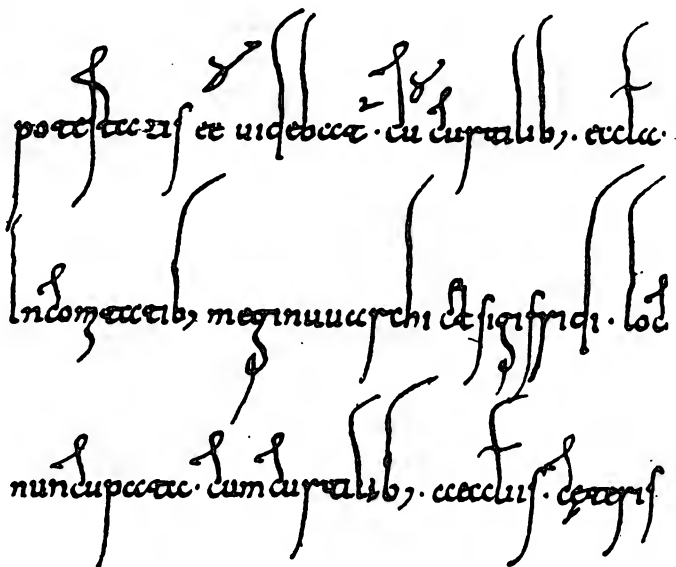 potestatis et uidebat . cu curtilib; . eccla .
Incometatib; meginuuarchi et sigifridi . loc
nuncupata . cum curtilib; . aeccliis . cęteris